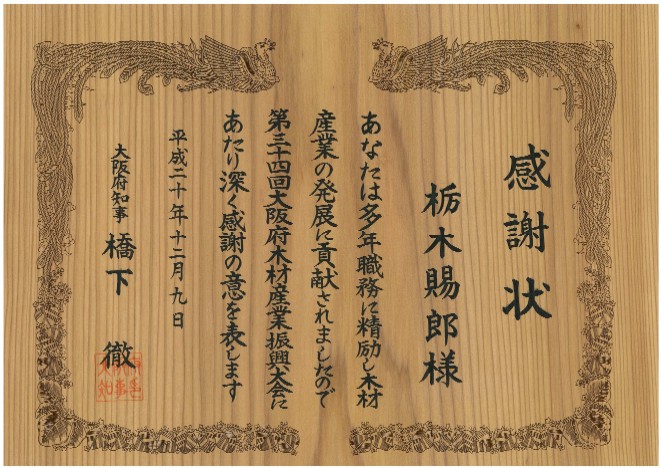 感謝状
栃木賜郎様
あなたは多年職務に精励し木材
産業の発展に貢献されましたので
第三十四回大阪府木材産業振興大会に
あたり深く感謝の意を表します
平成二十年十二月九日
大阪府知事 橋下 徹